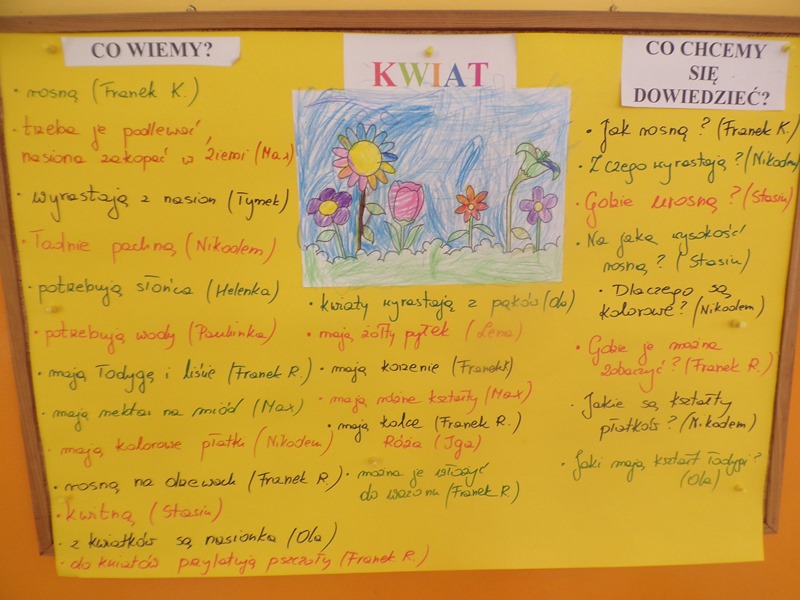 CO WIEMY?
• rosną (Franek K.)
• trzeba je podlewać,
nasiona zakopać w ziemi (Max)
• wyrastają z nasion (Tymek)
• Ładnie pachną (Nikodem)
• potrzebują słońca (Helenka)
• potrzebują wody (Paulinka)
• mają łodygę i liście (Franek R.)
• mają nektar na miód (Max)
• mają kolorowe płatki (Nikodem)
• rosną na drzewach (Franek R.)
• kwitną (Stasiu)
• z kwiatków są nasionka (Ola)
• do kwiatów przylatują pszczoły (Franek R.)
KWIAT
• kwiaty wyrastają z pąków (Ola)
• mają żółty pyłek (Lena)
• mają korzenie (Franek)
• mają różne kształty (Max)
• mają kolce (Franek R.)
Róża (Iga)
• można je włożyć
do wazonu (Franek R.)
CO CHCEMY
SIĘ
DOWIEDZIEĆ?
• Jak rosną? (Franek K.)
• Z czego wyrastają? (Nikodem)
• Gdzie urosną? (Stasiu)
• Na jaką wysokość
rosną? (Stasiu)
• Dlaczego są
kolorowe? (Nikodem)
• Gdzie je można
zobaczyć? (Franek R.)
• Jakie są kształty
płatków? (Nikodem)
• Jaki mają kształt łodygi?
(Ola)